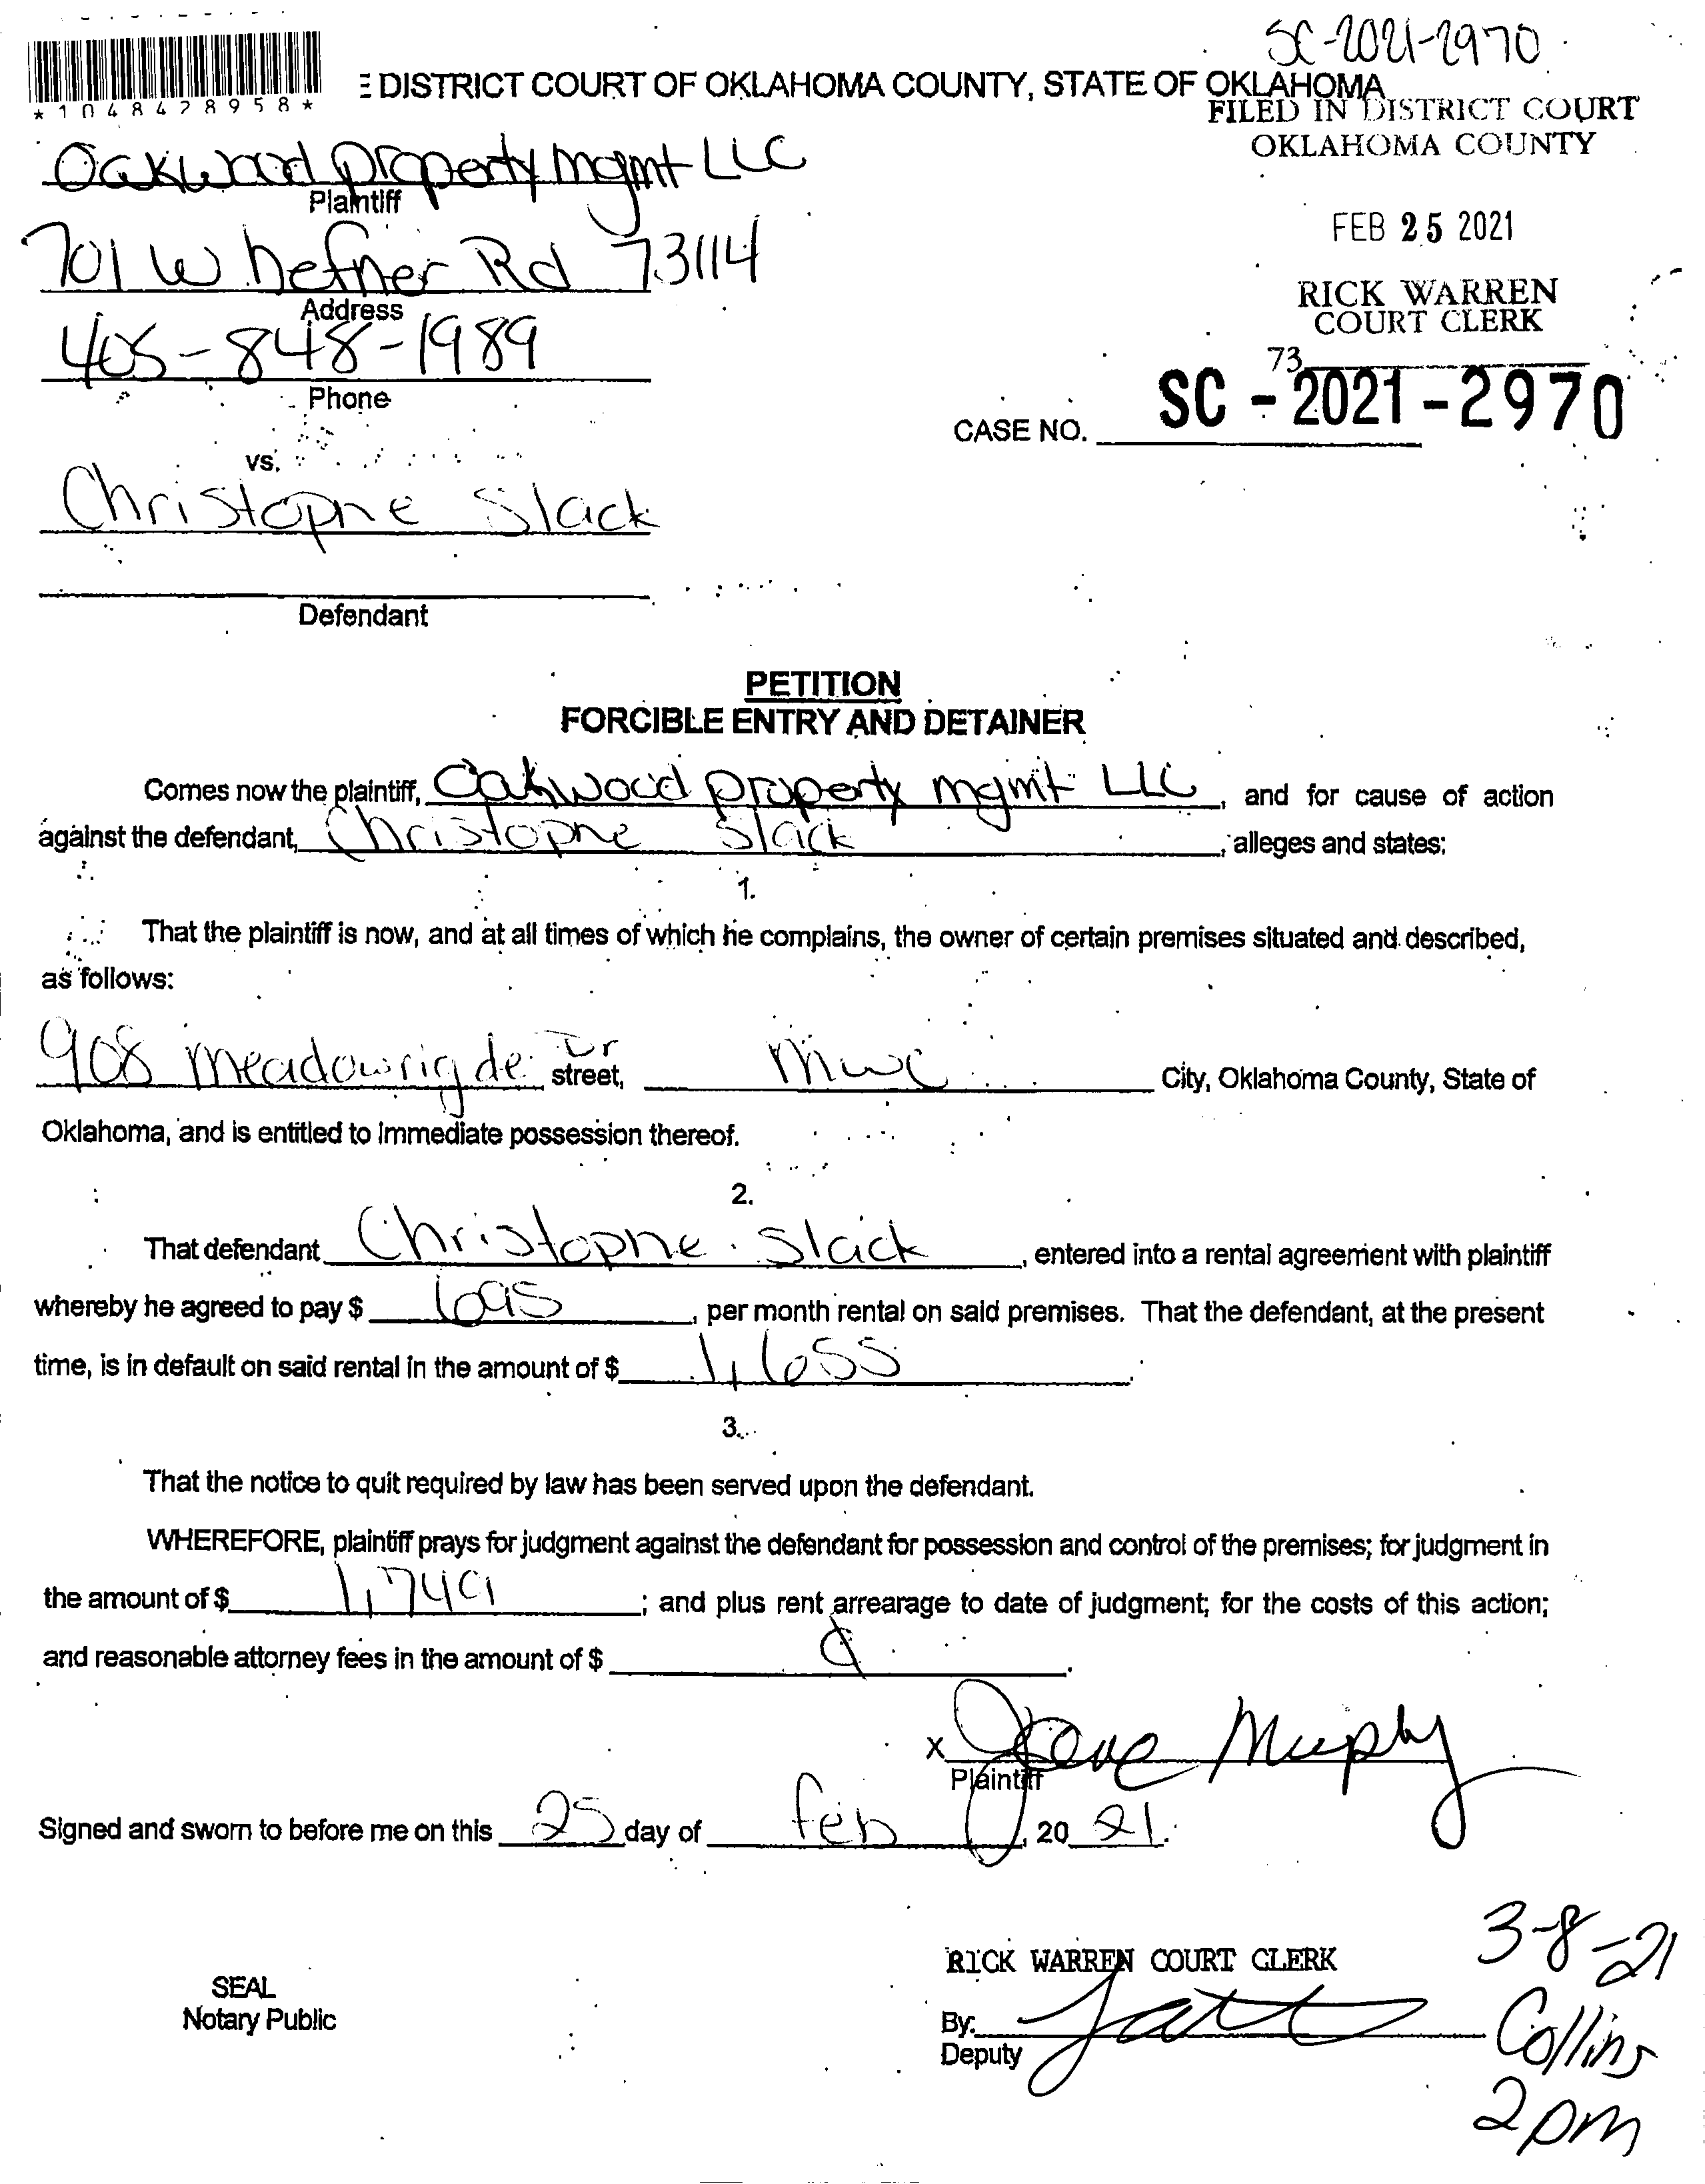 SC-2021-2970
*1048428958*
E DISTRICT COURT OF OKLAHOMA COUNTY, STATE OF OKLAHOMA
FILED IN DISTRICT COURT
OKLAHOMA COUNTY
Oakwood property mgmt LLC
Plaintiff
FEB 25 2021
701 W hefner Rd 73114
Address
RICK WARREN
COURT CLERK
405-848-1989
Phone
73
CASE NO. SC - 2021 - 2970
vs.
Christophe Slack
Defendant
PETITION
FORCIBLE ENTRY AND DETAINER
Comes now the plaintiff, Oakwood property mgmt LLC, and for cause of action
against the defendant, Christophe Slack, alleges and states:
1.
That the plaintiff is now, and at all times of which he complains, the owner of certain premises situated and described,
as follows:
908 Meadowrigde Dr street, MWC City, Oklahoma County, State of
Oklahoma, and is entitled to immediate possession thereof.
2.
That defendant Christophe Slack, entered into a rental agreement with plaintiff
whereby he agreed to pay $ 695, per month rental on said premises. That the defendant, at the present
time, is in default on said rental in the amount of $ 1,655.
3.
That the notice to quit required by law has been served upon the defendant.
WHEREFORE, plaintiff prays for judgment against the defendant for possession and control of the premises; for judgment in
the amount of $ 1,749; and plus rent arrearage to date of judgment; for the costs of this action;
and reasonable attorney fees in the amount of $
X Murphy
Plaintiff
Signed and sworn to before me on this 25 day of Feb, 20 21.
3-8-21
RICK WARREN COURT CLERK
SEAL
Notary Public
By:
Deputy
Collins
2pm